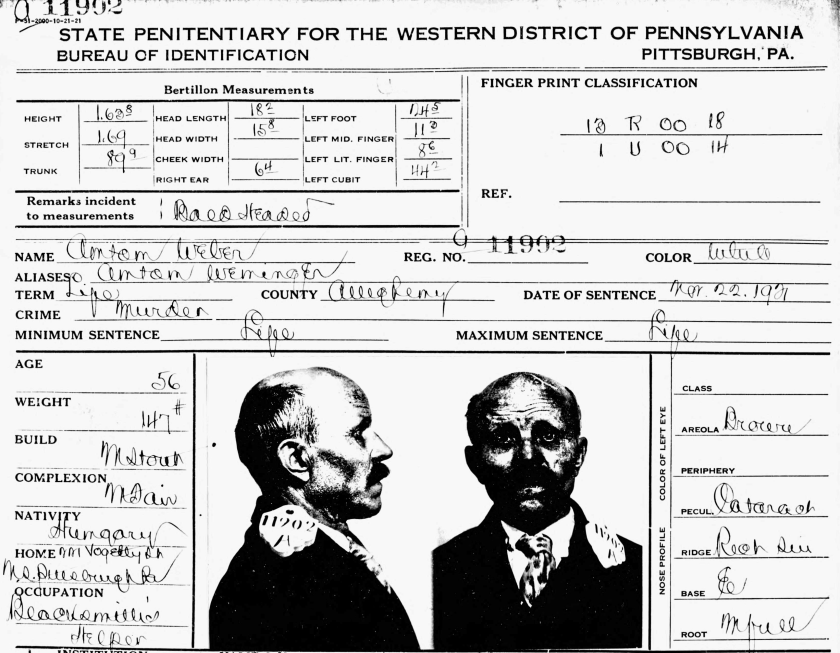 11902
P-31-2000-10-21-21
STATE PENITENTIARY FOR THE WESTERN DISTRICT OF PENNSYLVANIA
BUREAU OF IDENTIFICATION PITTSBURGH, PA.
Bertillon Measurements
HEIGHT 1.63⁸ HEAD LENGTH 18² LEFT FOOT 24⁵
STRETCH 1.69 HEAD WIDTH 15⁸ LEFT MID. FINGER 11³
TRUNK 89⁹ CHEEK WIDTH LEFT LIT. FINGER 8⁶
RIGHT EAR 64 LEFT CUBIT 44²
Remarks incident
to measurements Bald Headed
FINGER PRINT CLASSIFICATION
13 R OO 18
1 U OO 14
REF.
NAME Antom Weber REG. NO. 11902 COLOR White
ALIASES Antom Weminger
TERM Life COUNTY Allegheny DATE OF SENTENCE Nov. 22. 1931
CRIME Murder
MINIMUM SENTENCE Life MAXIMUM SENTENCE Life
AGE
56
WEIGHT
147#
BUILD
M Stout
COMPLEXION
M Fair
NATIVITY
Hungary
HOME Vogelly St
N.S. Pittsburgh Pa
OCCUPATION
Blacksmith's
Helper
11902
A
COLOR OF LEFT EYE
CLASS
AREOLA Brown
PERIPHERY
PECUL. Cataract
NOSE PROFILE
RIDGE
BASE
ROOT M full
INSTITUTION